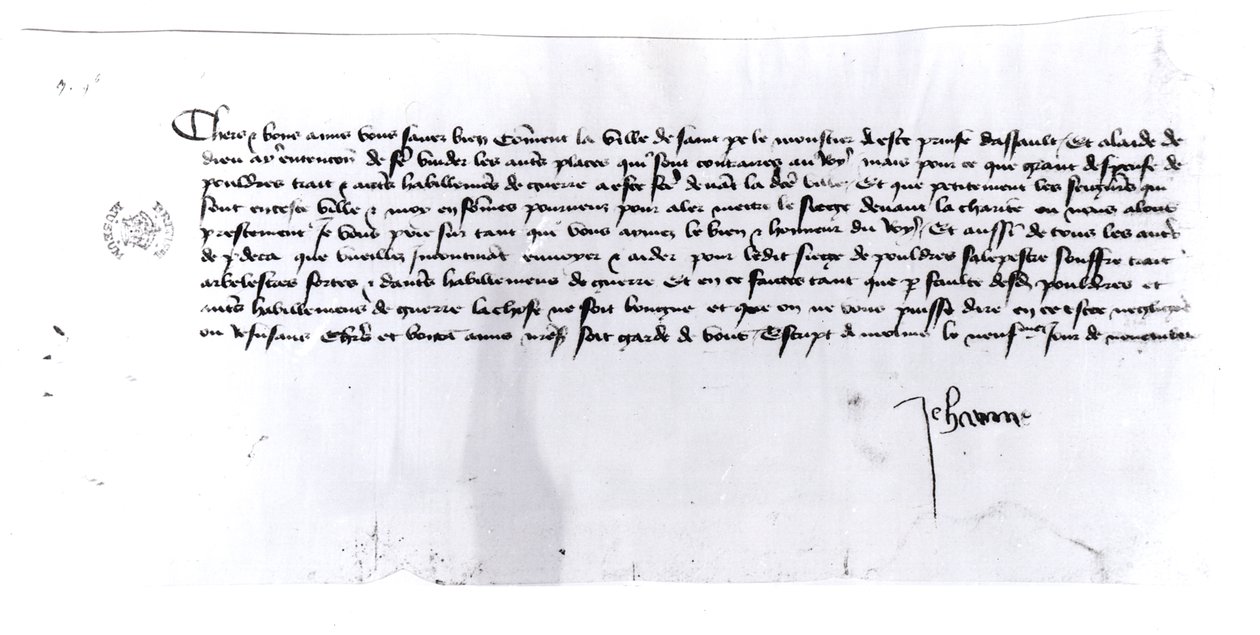 Chers et bons amis vous savez bien comment la ville de saint pere le moustier a este prinse dassault / Et a laide de
dieu ay entencion de faire vuider les autres places qui sont contraires au Roy / mais pour ce que grant despense de
pouldres trait et autres habillemens de guerre a este faicte devant ladicte ville / Et que petitement les seigneurs qui
sont en ceste ville et moy en sommes pourveuz pour aler mettre le siege devant la charite ou nous alons
prestement Je vous prie sur tant que vous aymez le bien et honneur du Roy / Et aussi de tous les autres
de par deca que vueillez incontinant envoyer et aider pour ledit siege de pouldres salepestre souffre trait
arbelestres fortes et dautres habillemens de guerre Et en ce faictes tant que par faulte desdictes pouldres et
autres habillemens de guerre la chose ne soit longue et que on ne vous puisse dire en ce estre negligens
ou refusans Chers et bons amis nostre sire soit garde de vous / Escript a molins le neufviesme jour de novembre
Jehanne
BRITISH MUSEUM